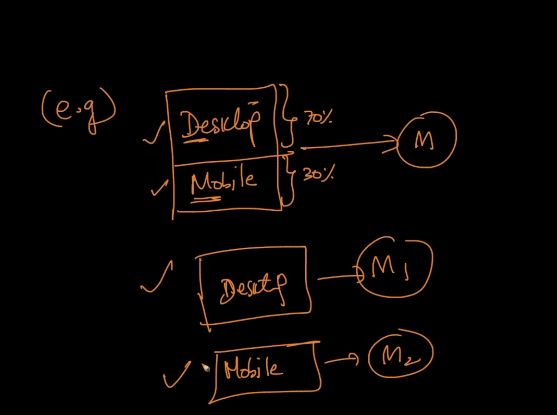 (e.g)
Desktop 70%
M
Mobile 30%
Desktop M1
Mobile M2